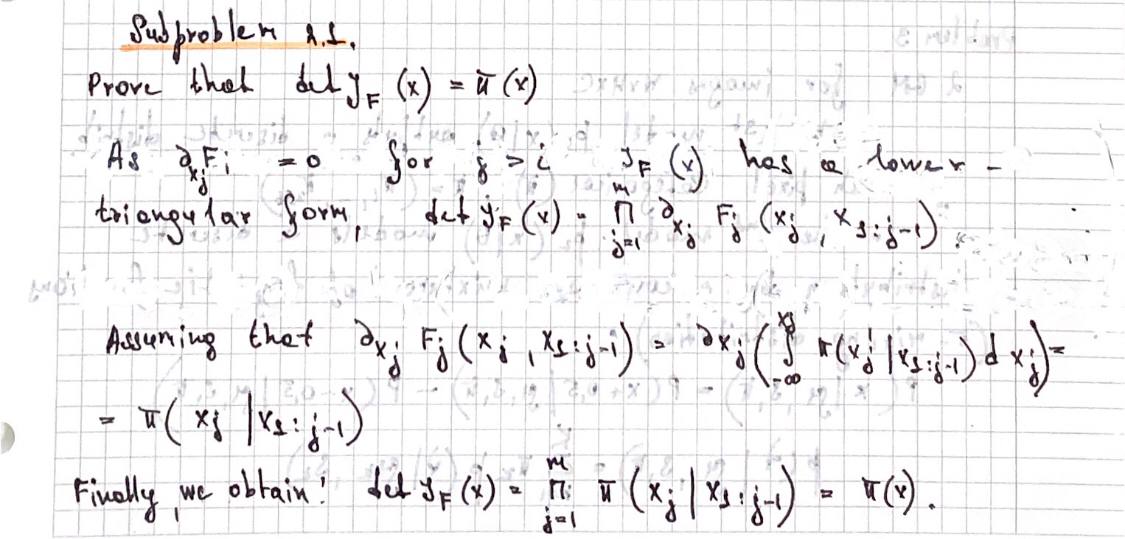 Subproblem 2.1.
Prove that det J_F (x) = π (x)
As ∂_{x_j} F_i = 0 for j > i J_F (x) has a lower -
triangular form, det J_F (x) = ∏_{j=1}^{m} ∂_{x_j} F_j (x_j , x_{1:j-1}).
Assuming that ∂_{x_j} F_j (x_j , x_{1:j-1}) = ∂_{x_j} (∫_{-∞}^{x_j} π(x_j' | x_{1:j-1}) d x_j') =
= π( x_j | x_{1:j-1})
Finally, we obtain: det J_F (x) = ∏_{j=1}^{m} π (x_j | x_{1:j-1}) = π(x).